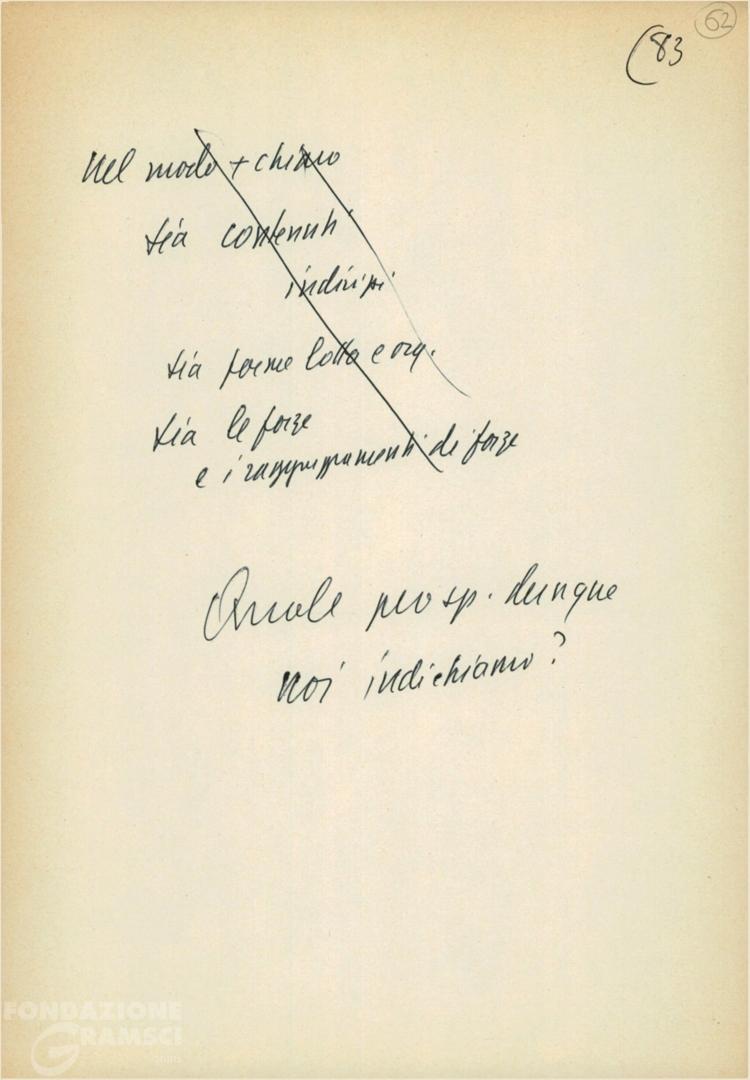 62
(83
Nel modo + chiaro
sia contenuti
indirizzi
sia forme lotta e org.
sia le forze
e i raggruppamenti di forze
Quale prosp. dunque
noi indichiamo?
FONDAZIONE
GRAMSCI